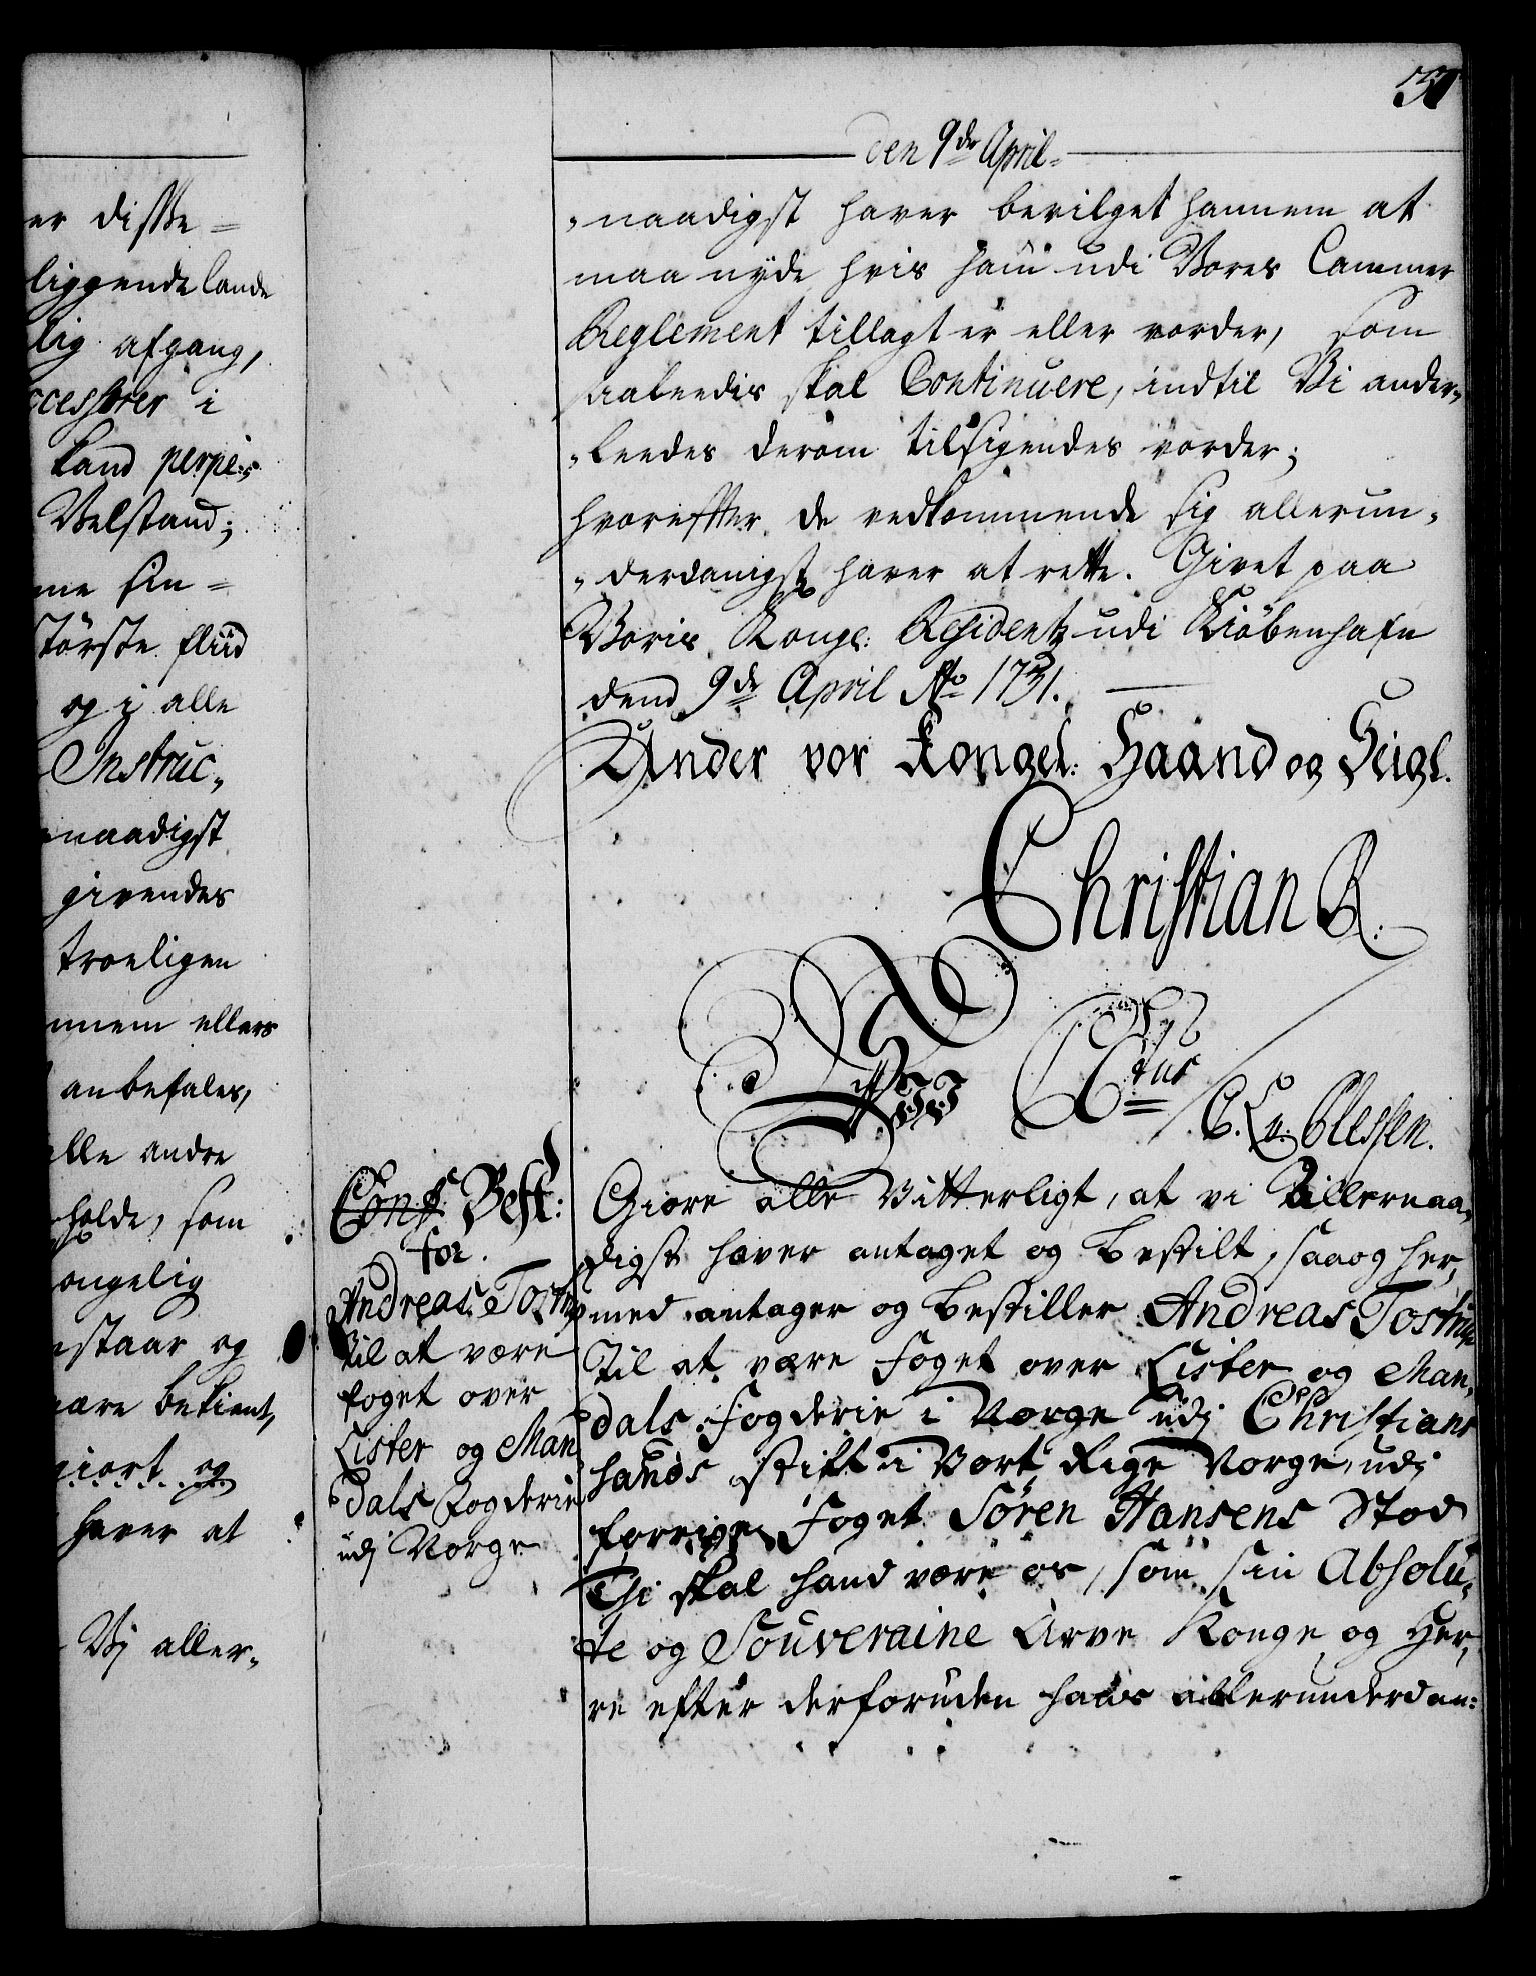 er disse=
liggende lande
lig afgang,
ccessorer i
Land perpe=
Velstand;
me sin=
störste fliid
og i alle
Instruc„
naadigst
givendes
troeligen
nnem ellers
anbefales,
alle andre
holde, som
ongelig
staar og
være bekient,
giort og
haver at
Vi aller„
31
den 9de April
„naadigst haver bevilget hannem at
maa nyde hvis ham udi Vores Cammer
Reglement tillagt er eller vorder, som
saaleedis skal Continuere, indtil Vi ander„
„leedes derom tilsigendes vorder;
hvorefter de vedkommende sig allerun„
„derdanigst haver at rette. Givet paa
Voris Kongl: Residentz udi Kiöbenhafn
dend 9de April Ao 1731.
Under vor Kongel: Haand og Seigl.
Christian R.
C. A. v. Plessen.
Conf. Best:
for
Andreas Tost
til at være
foget over
Lister og Man
dals Fogderie
udj Norge
Giöre alle Vitterligt, at vi Allernaa„
digst haver antaget og Bestilt, saa og her„
med antager og Bestiller Andreas Tostrup
til at være Foget over Lister og Man„
dals Fogderie i Norge udj Christians
sands stift i Vort Rige Norge, udj
forrige Foget Sören Hansens Stod
Thi skal hand være os, som sin Absolu„
te og Souveraine Arve Konge og Her„
re efter derforuden hans allerunderdan: